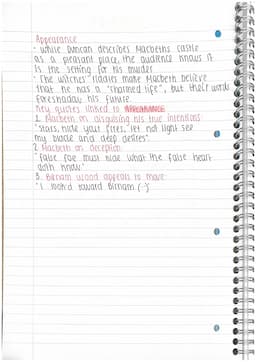 Appearance
- While Duncan describes Macbeths castle
as a pleasant place, the audience knows it
is the setting for his murder
- The witches' riddles make Macbeth believe
that he has a "charmed life", but their words
foreshadow his future.
Key quotes linked to
1. Macbeth on disguising his true intentions:
"Stars, hide your fires, let not light see
my black and deep desires"
2. Macbeth on deception:
"False face must hide what the false heart
doth know"
3. Birnam wood appears to move:
"I looked toward Birnam (